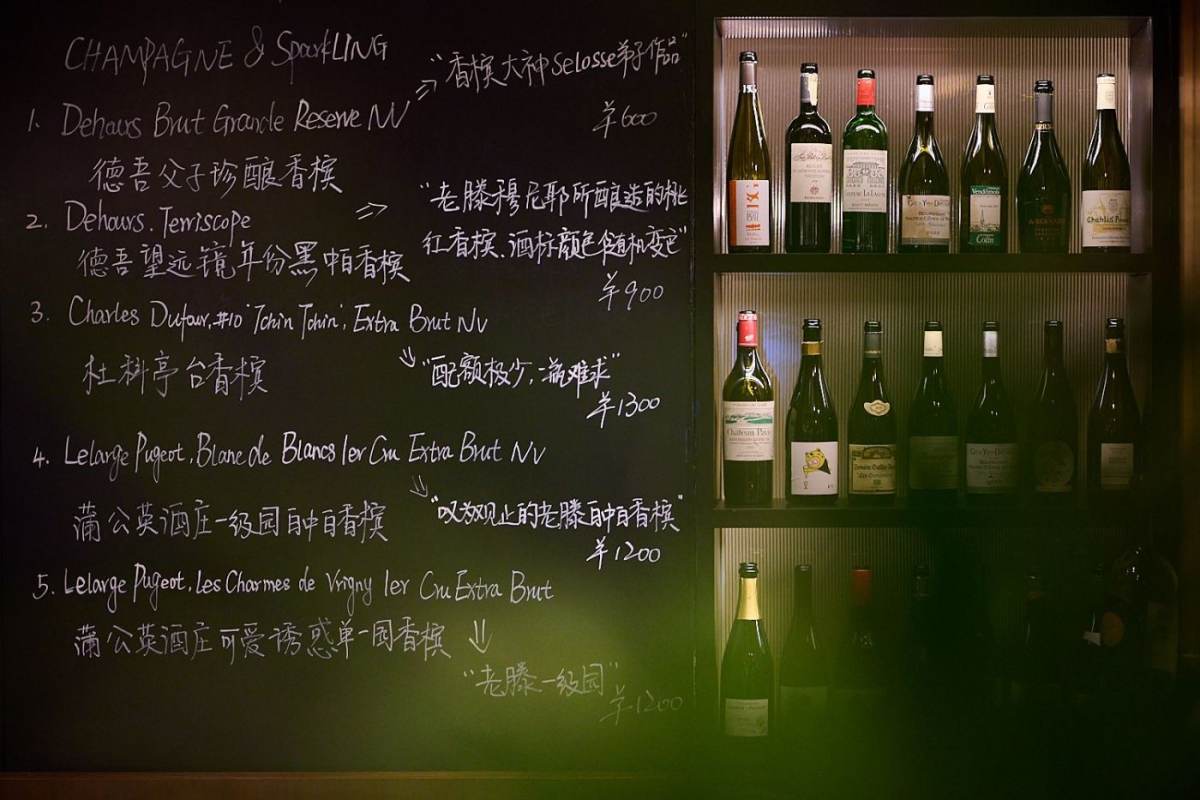 CHAMPAGNE & Sparkling
1. Dehours Brut Grande Reserve NV
"香槟大神Selosse弟子作品"
¥600
德吾父子珍酿香槟
2. Dehours. Terriscope
"老藤穆尼耶所酿造的桃
红香槟、酒标颜色会随机变色"
¥900
德吾望远镜年份黑中白香槟
3. Charles Dufour, #10 'Tchin Tchin', Extra Brut NV
"配额极少,一瓶难求"
¥1300
杜科亭台香槟
4. Lelarge Pugeot, Blanc de Blancs 1er Cru Extra Brut NV
"叹为观止的老藤白中白香槟"
¥1200
蒲公英酒庄一级园白中白香槟
5. Lelarge Pugeot, Les Charmes de Vrigny 1er Cru Extra Brut
蒲公英酒庄可爱诱惑单一园香槟
"老藤一级园"
¥1200
Vendémois
Colin
Chablis
Chateau